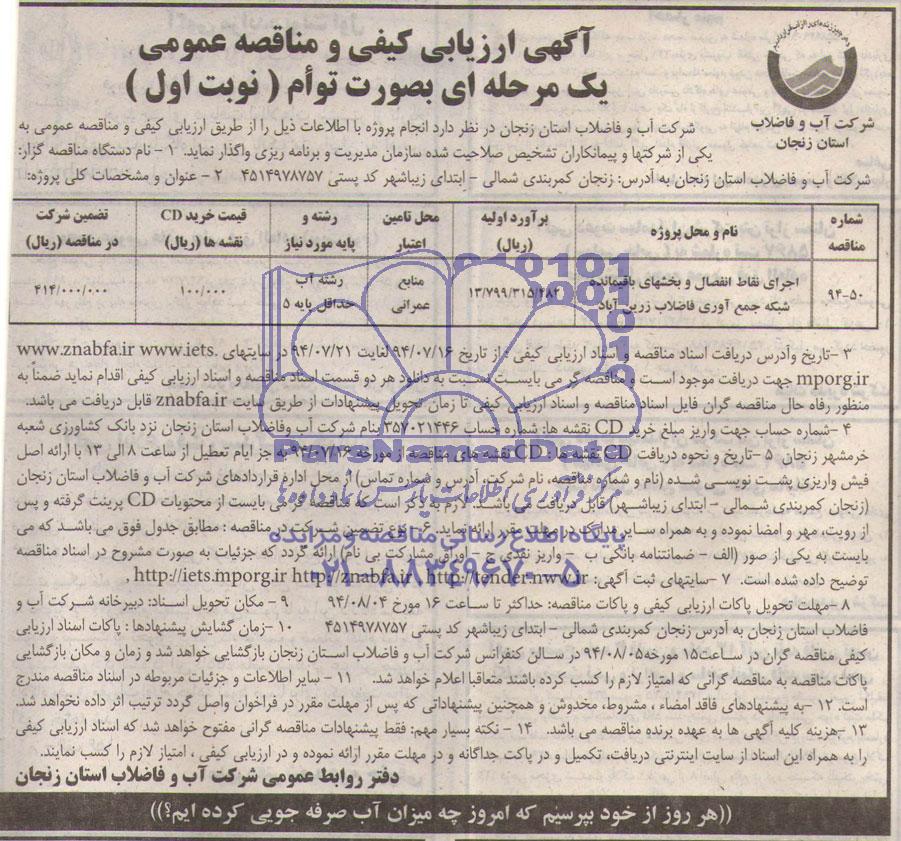 آگهی ارزیابی کیفی و مناقصه عمومی
یک مرحله ای بصورت توأم ( نوبت اول )
شرکت آب و فاضلاب
استان زنجان
شرکت آب و فاضلاب استان زنجان در نظر دارد انجام پروژه با اطلاعات ذیل را از طریق ارزیابی کیفی و مناقصه عمومی به
یکی از شرکتها و پیمانکاران تشخیص صلاحیت شده سازمان مدیریت و برنامه ریزی واگذار نماید. ۱ - نام دستگاه مناقصه گزار:
شرکت آب و فاضلاب استان زنجان به آدرس: زنجان کمربندی شمالی - ابتدای زیباشهر کد پستی ۴۵۱۴۹۷۸۷۵۷ ۲ - عنوان و مشخصات کلی پروژه:
شماره مناقصه | نام و محل پروژه | برآورد اولیه (ریال) | محل تامین اعتبار | رشته و پایه مورد نیاز | قیمت خرید CD نقشه ها (ریال) | تضمین شرکت در مناقصه (ریال)
۹۴-۵۰ | اجرای نقاط انفصال و بخشهای باقیمانده شبکه جمع آوری فاضلاب زرین آباد | ۱۳/۷۹۹/۳۱۵/۴۸۲ | منابع عمرانی | رشته آب حداقل پایه ۵ | ۱۰۰/۰۰۰ | ۴۱۴/۰۰۰/۰۰۰
۳ -تاریخ وآدرس دریافت اسناد مناقصه و اسناد ارزیابی کیفی : از تاریخ ۹۴/۰۷/۱۶ لغایت ۹۴/۰۷/۲۱ در سایتهای www.znabfa.ir www.iets.
mporg.ir جهت دریافت موجود است و مناقصه گر می بایست نسبت به دانلود هر دو قسمت اسناد مناقصه و اسناد ارزیابی کیفی اقدام نماید ضمناً به
منظور رفاه حال مناقصه گران فایل اسناد مناقصه و اسناد ارزیابی کیفی تا زمان تحویل پیشنهادات از طریق سایت znabfa.ir قابل دریافت می باشد.
۴ -شماره حساب جهت واریز مبلغ خرید CD نقشه ها: شماره حساب ۳۵۷۰۲۱۴۴۶ بنام شرکت آب وفاضلاب استان زنجان نزد بانک کشاورزی شعبه
خرمشهر زنجان ۵ -تاریخ و نحوه دریافت CD نقشه ها: CD نقشه های مناقصه از مورخه ۹۴/۰۷/۱۶ به جز ایام تعطیل از ساعت ۸ الی ۱۳ با ارائه اصل
فیش واریزی پشت نویسی شده (نام و شماره مناقصه، نام شرکت، آدرس و شماره تماس) از محل اداره قراردادهای شرکت آب و فاضلاب استان زنجان
(زنجان کمربندی شمالی - ابتدای زیباشهر) قابل دریافت می باشد. لازم به ذکر است که مناقصه گر می بایست از محتویات CD پرینت گرفته و پس
از رویت، مهر و امضا نموده و به همراه سایر مدارک در مهلت مقرر ارائه نماید. ۶ - نوع تضمین شرکت در مناقصه : مطابق جدول فوق می باشد که می
بایست به یکی از صور (الف - ضمانتنامه بانکی ب - واریز نقدی ج - اوراق مشارکت بی نام) ارائه گردد که جزئیات به صورت مشروح در اسناد مناقصه
توضیح داده شده است. ۷ -سایتهای ثبت آگهی: http://iets.mporg.ir http://znabfa.ir http://tender.mww.ir
۸ -مهلت تحویل پاکات ارزیابی کیفی و پاکات مناقصه: حداکثر تا ساعت ۱۶ مورخ ۹۴/۰۸/۰۴ ۹ - مکان تحویل اسناد: دبیرخانه شرکت آب و
فاضلاب استان زنجان به آدرس زنجان کمربندی شمالی - ابتدای زیباشهر کد پستی ۴۵۱۴۹۷۸۷۵۷ ۱۰ -زمان گشایش پیشنهادها : پاکات اسناد ارزیابی
کیفی مناقصه گران در ساعت۱۵ مورخه۹۴/۰۸/۰۵ در سالن کنفرانس شرکت آب و فاضلاب استان زنجان بازگشایی خواهد شد و زمان و مکان بازگشایی
پاکات مناقصه به مناقصه گرانی که امتیاز لازم را کسب کرده باشند متعاقبا اعلام خواهد شد. ۱۱ - سایر اطلاعات و جزئیات مربوطه در اسناد مناقصه مندرج
است. ۱۲ -به پیشنهادهای فاقد امضاء ، مشروط، مخدوش و همچنین پیشنهاداتی که پس از مهلت مقرر در فراخوان واصل گردد ترتیب اثر داده نخواهد شد.
۱۳ -هزینه کلیه آگهی ها به عهده برنده مناقصه می باشد. ۱۴ - نکته بسیار مهم: فقط پیشنهادات مناقصه گرانی مفتوح خواهد شد که اسناد ارزیابی کیفی
را به همراه این اسناد از سایت اینترنتی دریافت، تکمیل و در پاکت جداگانه و در مهلت مقرر ارائه نموده و در ارزیابی کیفی ، امتیاز لازم را کسب نمایند.
دفتر روابط عمومی شرکت آب و فاضلاب استان زنجان
((هر روز از خود بپرسیم که امروز چه میزان آب صرفه جویی کرده ایم؟))
ParsNamadData
پایگاه اطلاع رسانی مناقصه و مزایده
۰۲۱-۸۸۳۴۹۶۷۰-۵